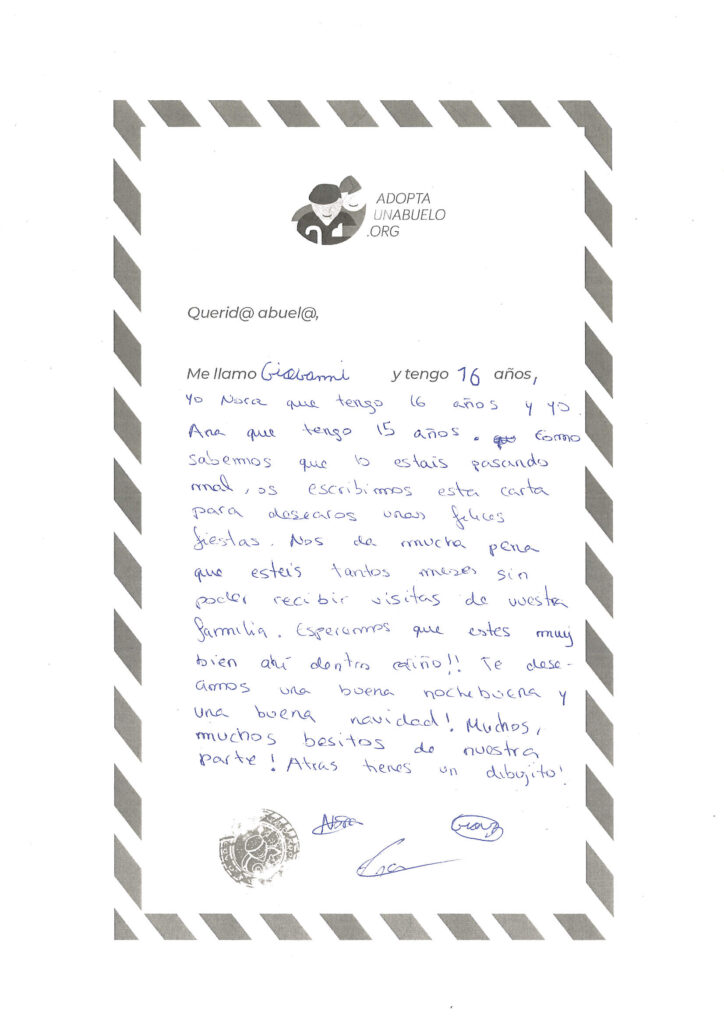 ADOPTA
UNABUELO
.ORG
Querid@ abuel@,
Me llamo Giovanni y tengo 16 años,
yo Nora que tengo 16 años y yo
Ana que tengo 15 años. Como
sabemos que lo estais pasando
mal, os escribimos esta carta
para desearos unas felices
fiestas. Nos da mucha pena
que esteis tantos meses sin
poder recibir visitas de vuestra
familia. Esperamos que estes muy
bien ahí dentro cariño!! Te dese-
amos una buena nochebuena y
una buena navidad! Muchos,
muchos besitos de nuestra
parte! Atras tienes un dibujito!
Nora